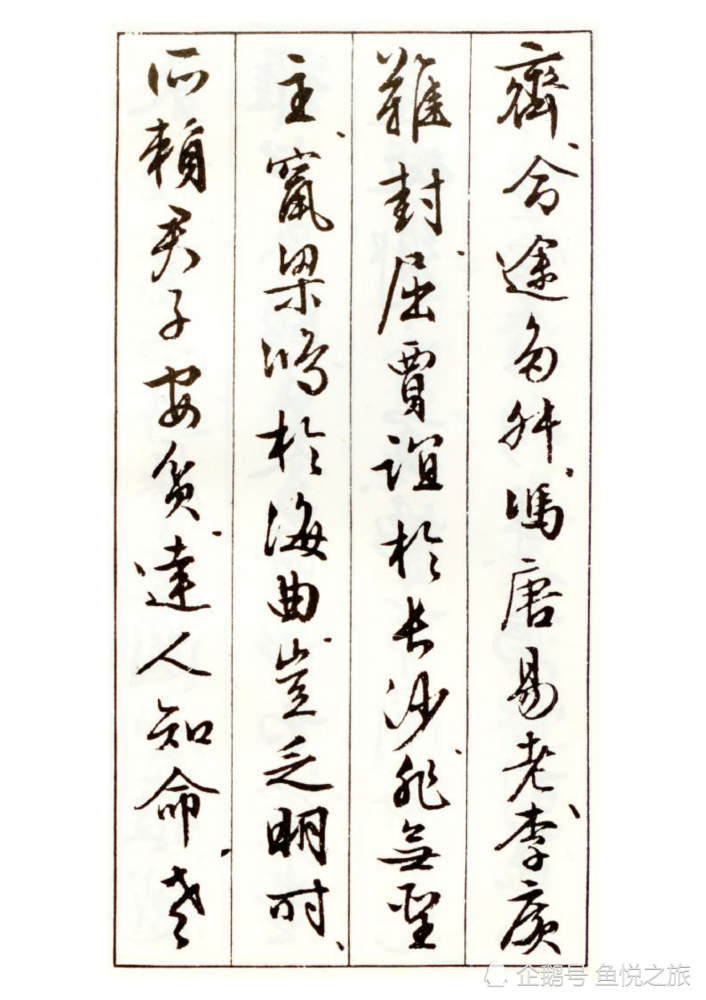 齊命途多舛馮唐易老李廣
難封屈賈誼於長沙非無聖
主竄梁鴻於海曲豈乏明時
所賴君子安貧達人知命老
企鹅号 鱼悦之旅